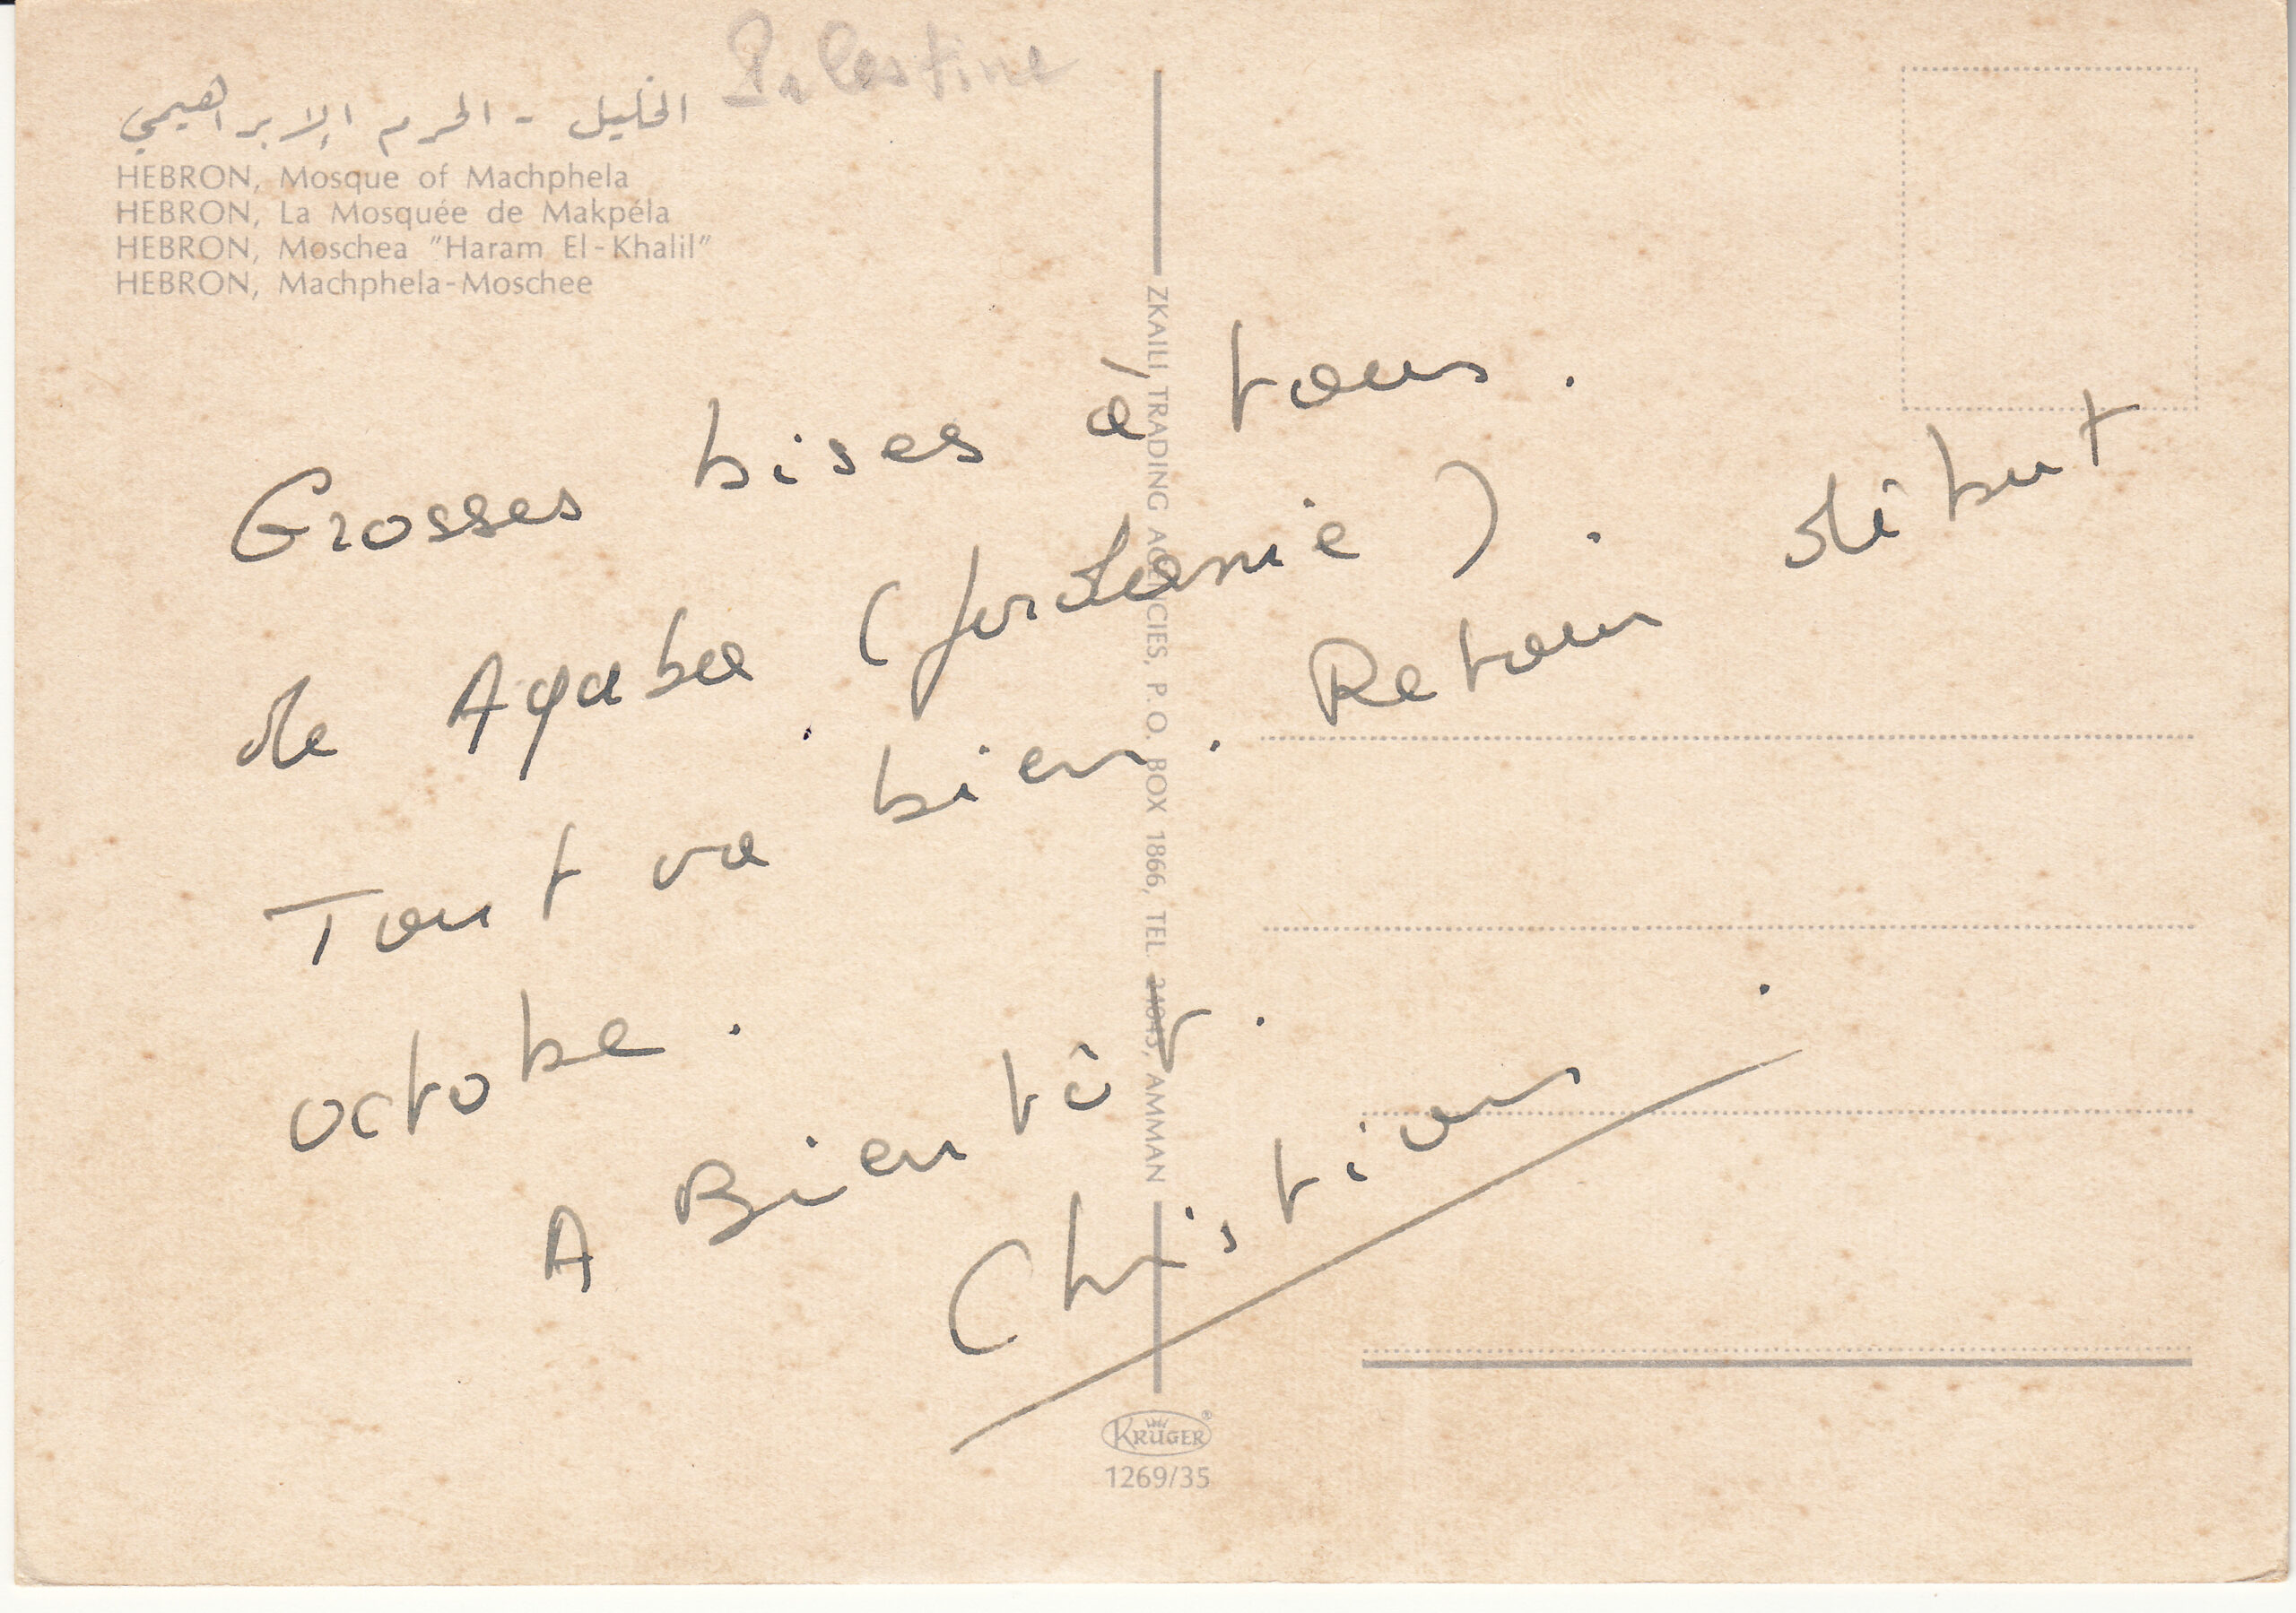 Palestine
الخليل - الحرم الإبراهيمي
HEBRON, Mosque of Machphela
HEBRON, La Mosquée de Makpéla
HEBRON, Moschea "Haram El-Khalil"
HEBRON, Machphela-Moschee
Grosses bises à tous.
de Aqaba (Jordanie).
Tout va bien. Retour début
octobe.
A Bientôt.
Christian.
ZKAILI TRADING AGENCIES, P.O. BOX 1866, TEL. 21045, AMMAN
KRÜGER®
1269/35